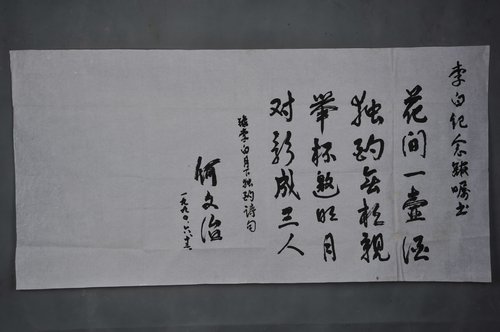 李白纪念馆嘱书
花间一壶酒
独酌无相親
举杯邀明月
对影成三人
李白月下独酌诗句
何文治
一九九〇.六